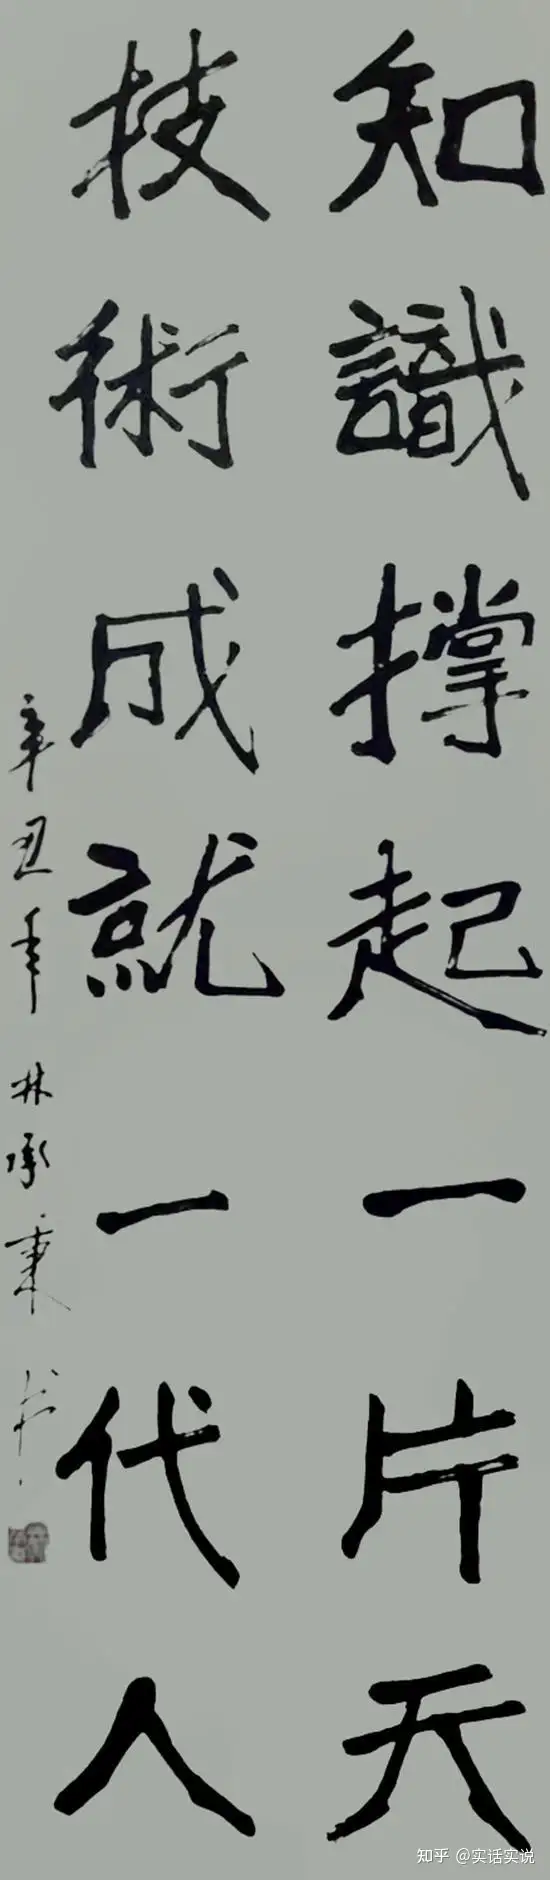 知識撐起一片天
技術成就一代人
辛丑年 林承秉 书
知乎 @实话实说